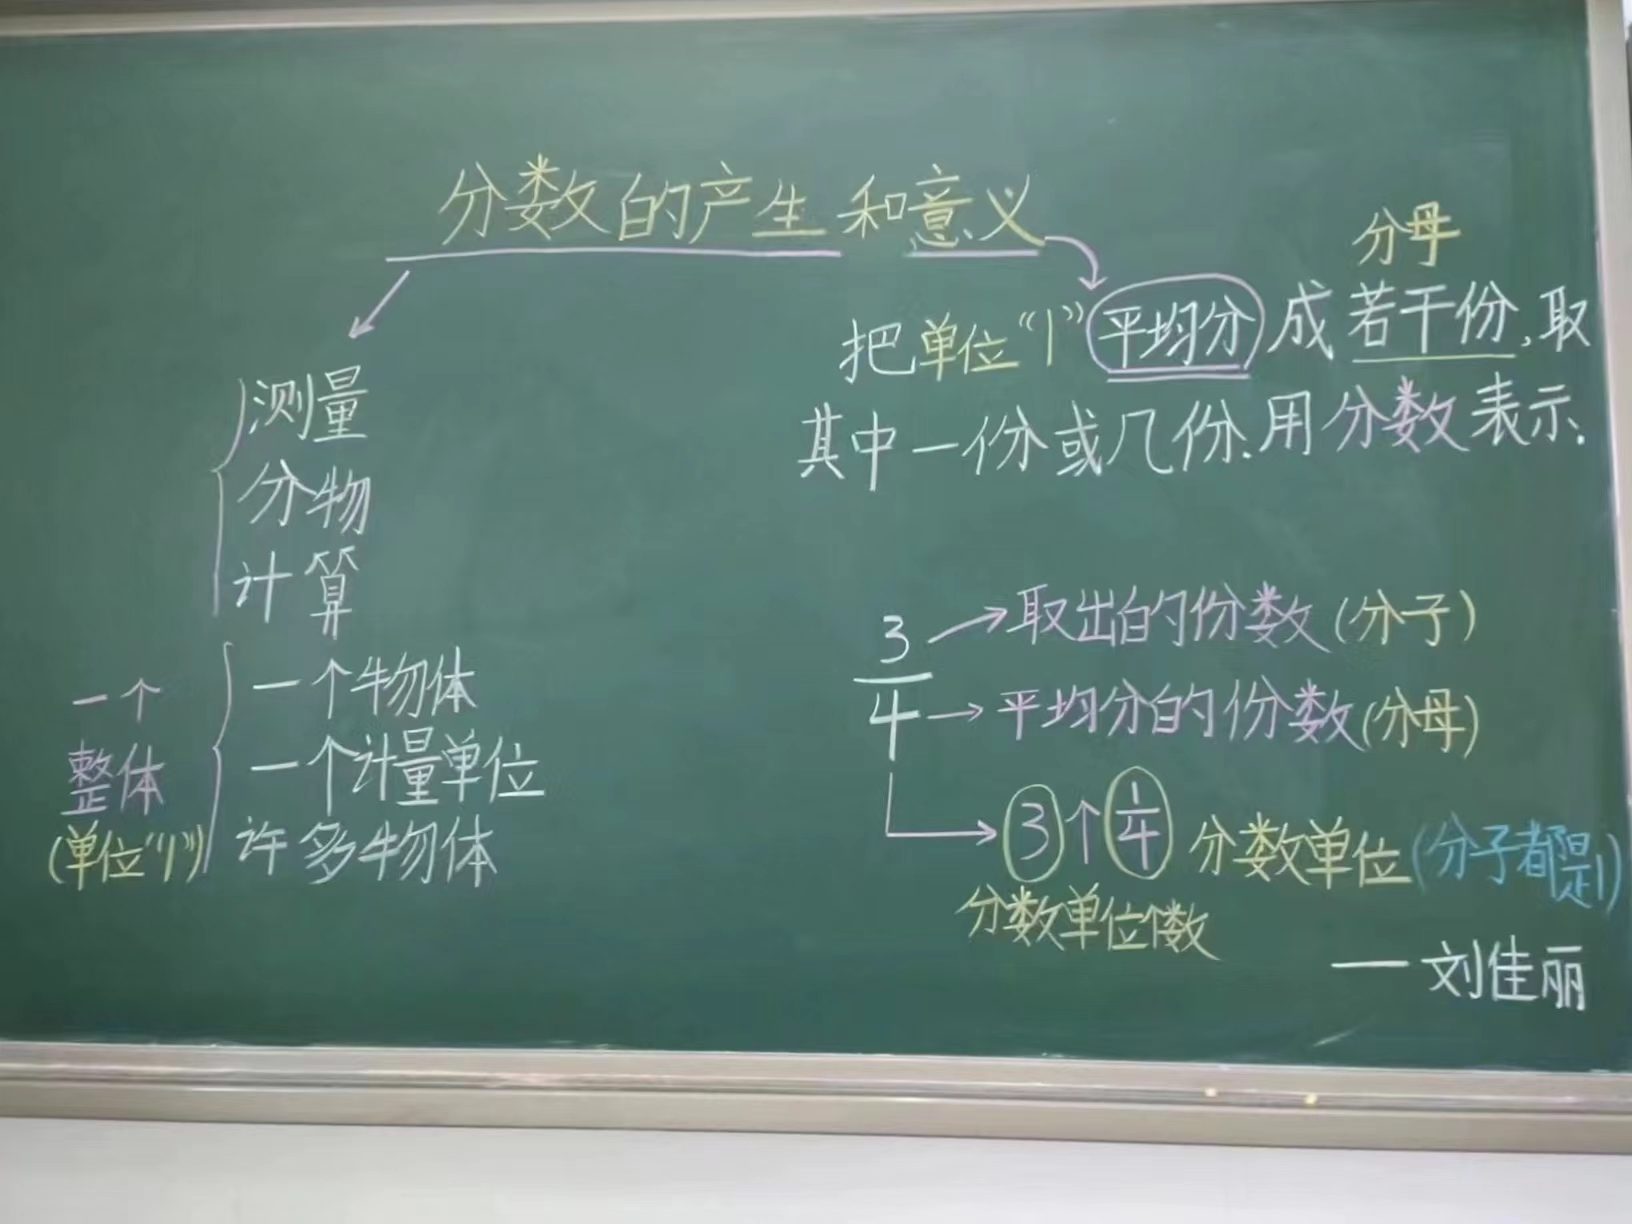 分数的产生和意义
测量
分物
计算
一个
整体
(单位“1”)
一个物体
一个计量单位
许多物体
分母
把单位“1”平均分成若干份,取
其中一份或几份.用分数表示.
3 → 取出的份数(分子)
4 → 平均分的份数(分母)
3个1/4 分数单位(分子都是1)
分数单位个数
—刘佳丽